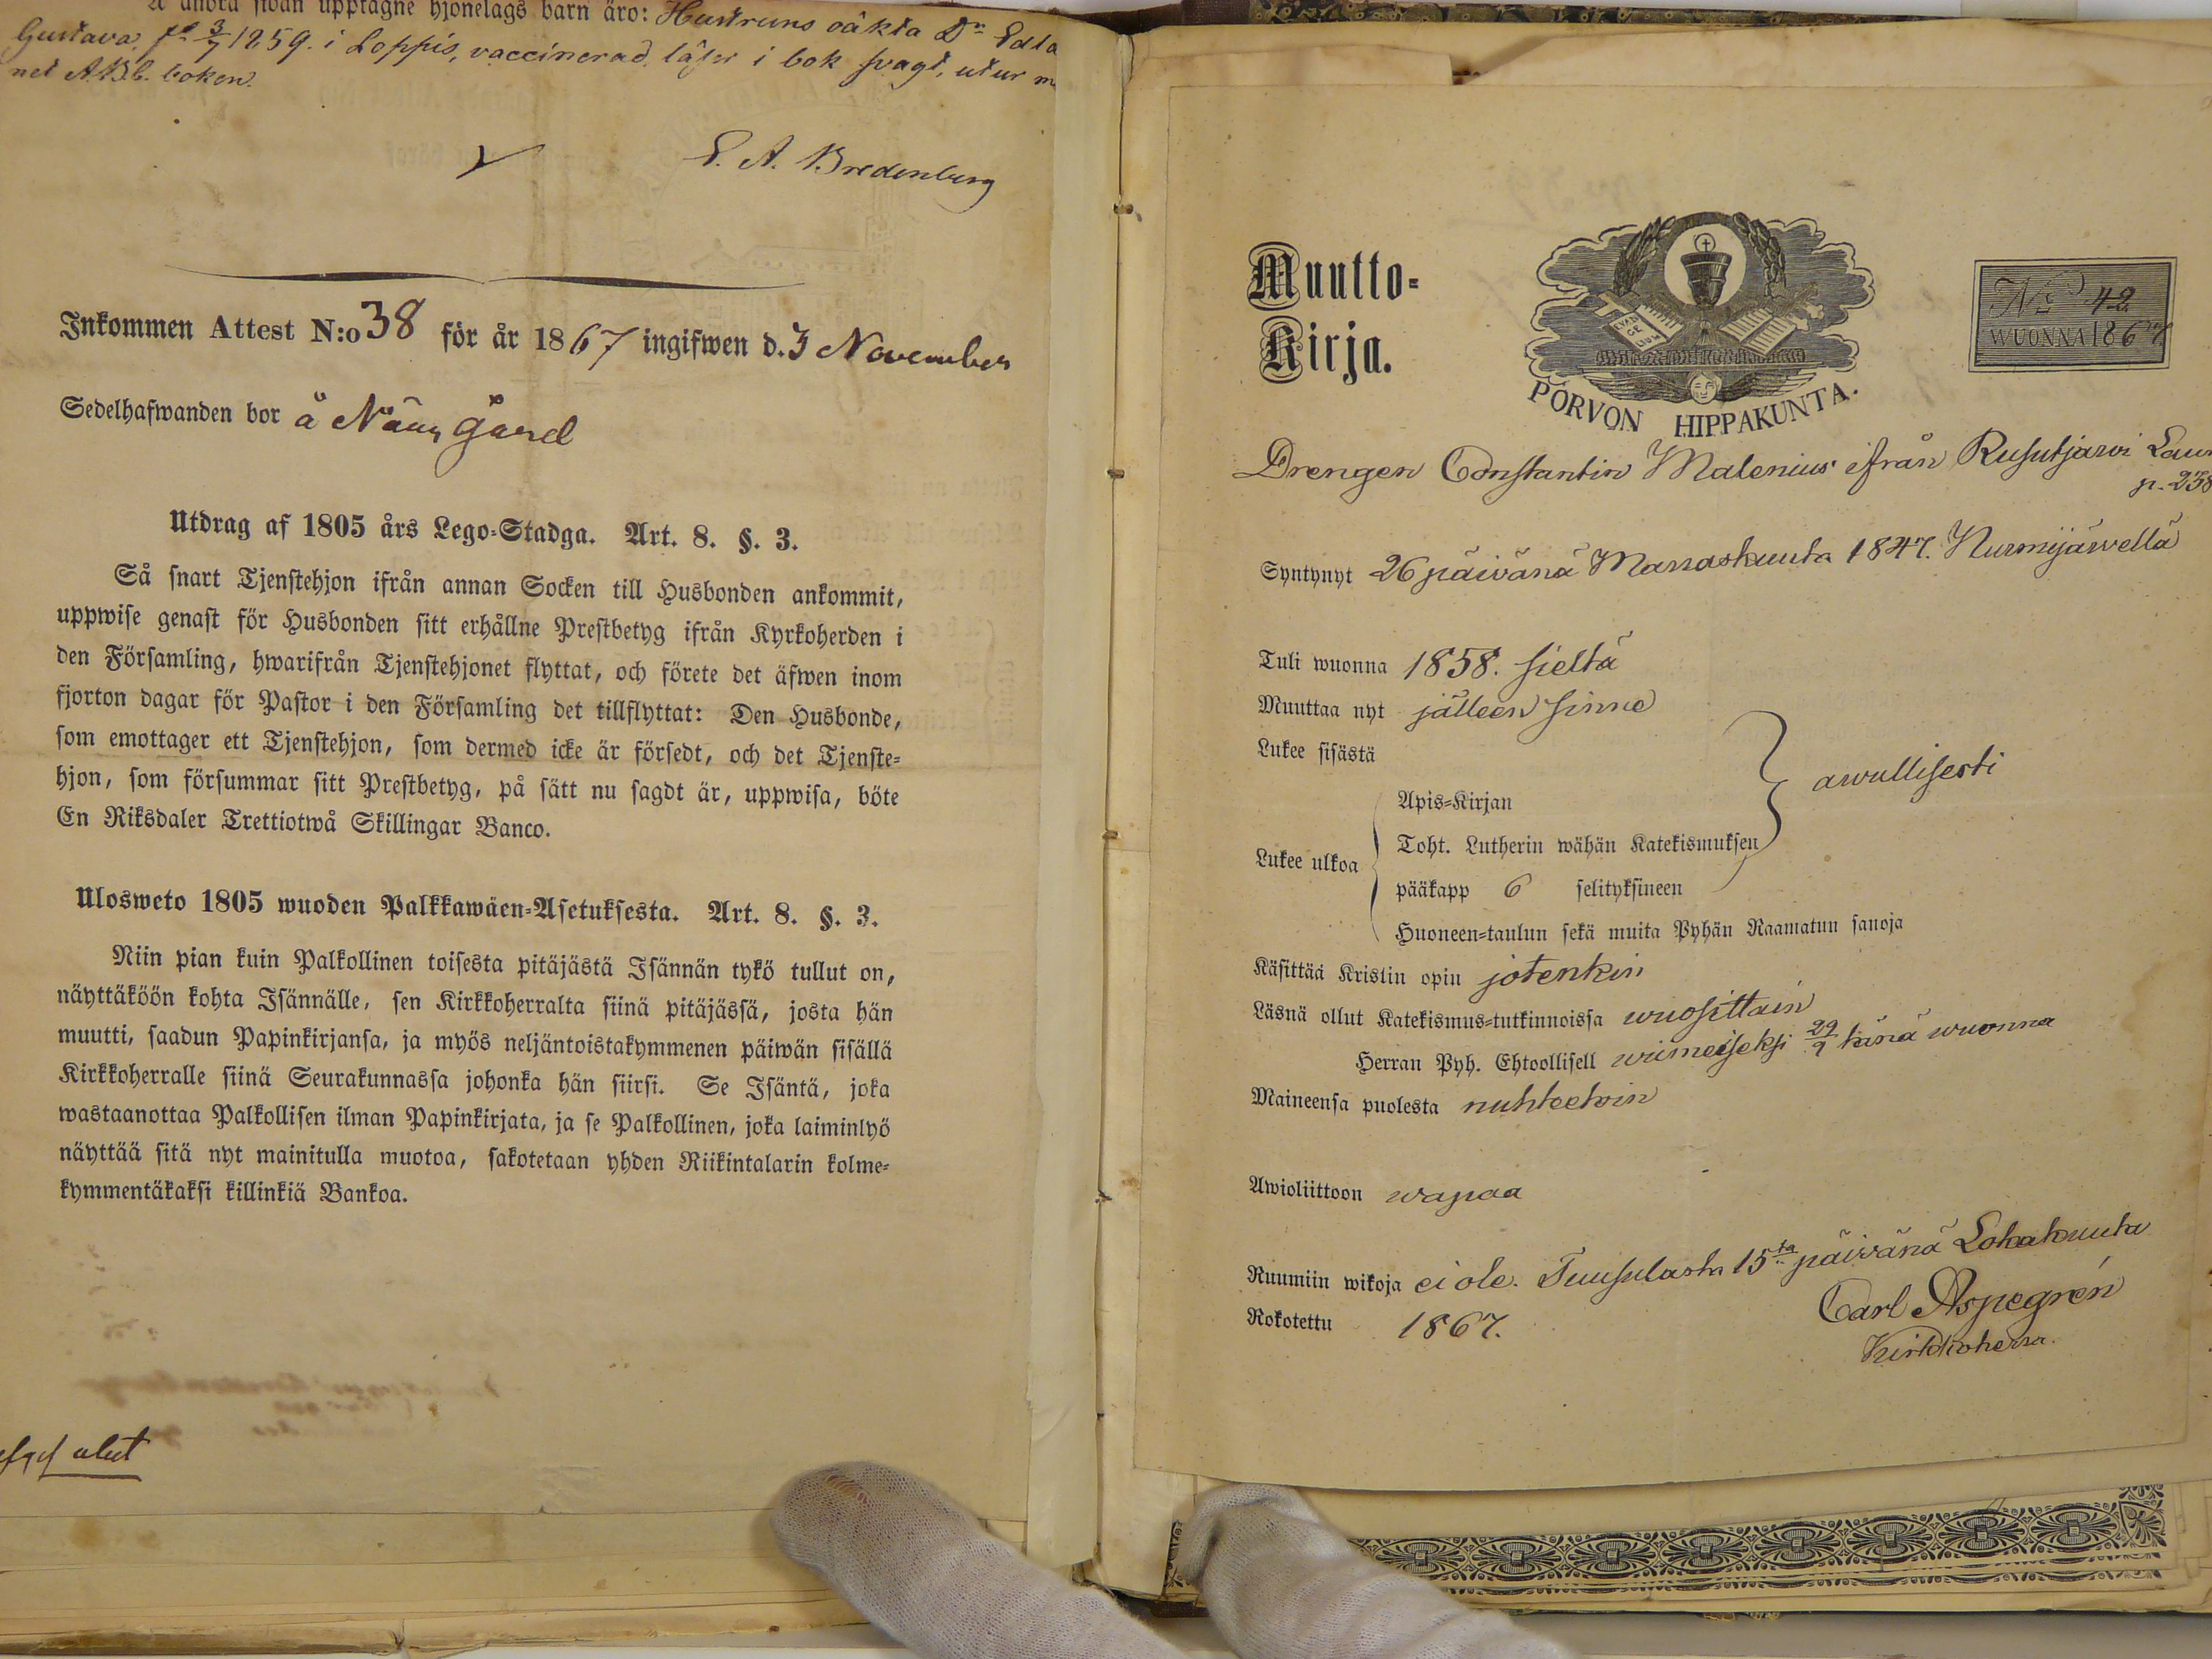 Å andra sidan upptagne hjonelags barn äro: Hustruns oäkta Dr Edla
Gustava, fd 3/7 1859. i Loppis, vaccinerad, läser i bok svagt, utur m
net A.B.C. boken.
E. A. Bredenberg
Inkommen Attest N:o 38 för år 1867 ingifwen d. 3 November
Sedelhafwanden bor å Näs gård
Utdrag af 1805 års Lego-Stadga. Art. 8. §. 3.
Så snart Tjenstehjon ifrån annan Socken till Husbonden ankommit,
uppwise genast för Husbonden sitt erhållne Prestbetyg ifrån Kyrkoherden i
den Församling, hwarifrån Tjenstehjonet flyttat, och förete det äfwen inom
fjorton dagar för Pastor i den Församling det tillflyttat: Den Husbonde,
som emottager ett Tjenstehjon, som dermed icke är försedt, och det Tjenste-
hjon, som försummar sitt Prestbetyg, på sätt nu sagdt är, uppwisa, böte
En Riksdaler Trettiotwå Skillingar Banco.
Ulosweto 1805 wuoden Palkkawäen-Asetuksesta. Art. 8. §. 3.
Niin pian kuin Palkollinen toisesta pitäjästä Isännän tykö tullut on,
näyttäköön kohta Isännälle, sen Kirkkoherralta siinä pitäjässä, josta hän
muutti, saadun Papinkirjansa, ja myös neljäntoistakymmenen päiwän sisällä
Kirkkoherralle siinä Seurakunnassa johonka hän siirsi. Se Isäntä, joka
wastaanottaa Palkollisen ilman Papinkirjata, ja se Palkollinen, joka laiminlyö
näyttää sitä nyt mainitulla muotoa, sakotetaan yhden Riikintalarin kolme-
kymmentäkaksi killinkiä Bankoa.
Muutto-
Kirja.
EVAN
GE
LIUM
PORVON HIPPAKUNTA.
No 42.
WUONNA 1867
Drengen Constantin Malenius ifrån Rusutjärvi Laur
p. 238
Syntynyt 26 päivänä Marraskuuta 1847. Nurmijärwellä
Tuli wuonna 1858. sieltä
Muuttaa nyt jälleen sinne
Lukee sisästä
Lukee ulkoa
Apis-Kirjan
Toht. Lutherin wähän Katekismuksen
pääkapp 6 selityksineen
Huoneen-taulun sekä muita Pyhän Raamatun sanoja
awullisesti
Käsittää Kristin opin jotenkin
Läsnä ollut Katekismus-tutkinnoissa wuosittain
Herran Pyh. Ehtoollisell wiimeiseksi 29/9 tänä wuonna
Maineensa puolesta nuhteetoin
Awioliittoon wapaa
Ruumiin wikoja ei ole. Tuusulasta 15ta päivänä Lokakuuta
Rokotettu 1867.
Carl Aspegrén
Kirkkoherra.